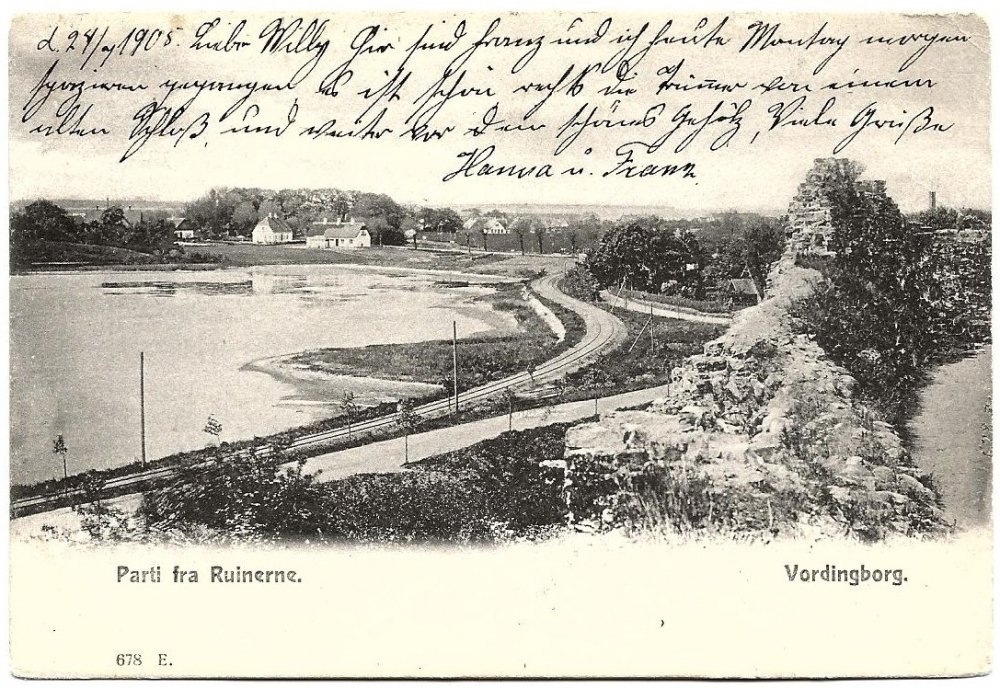 d. 24/4 1905. Liebe Willy Hir sind Franz und ich heute Montag morgen
spaziren gegangen es ist schön rechts die Trümmer von einem
alten Schloß, und weiter vor der schönes Gehölz, Viele Grüße
Hanna u. Franz
Parti fra Ruinerne.
Vordingborg.
678 E.